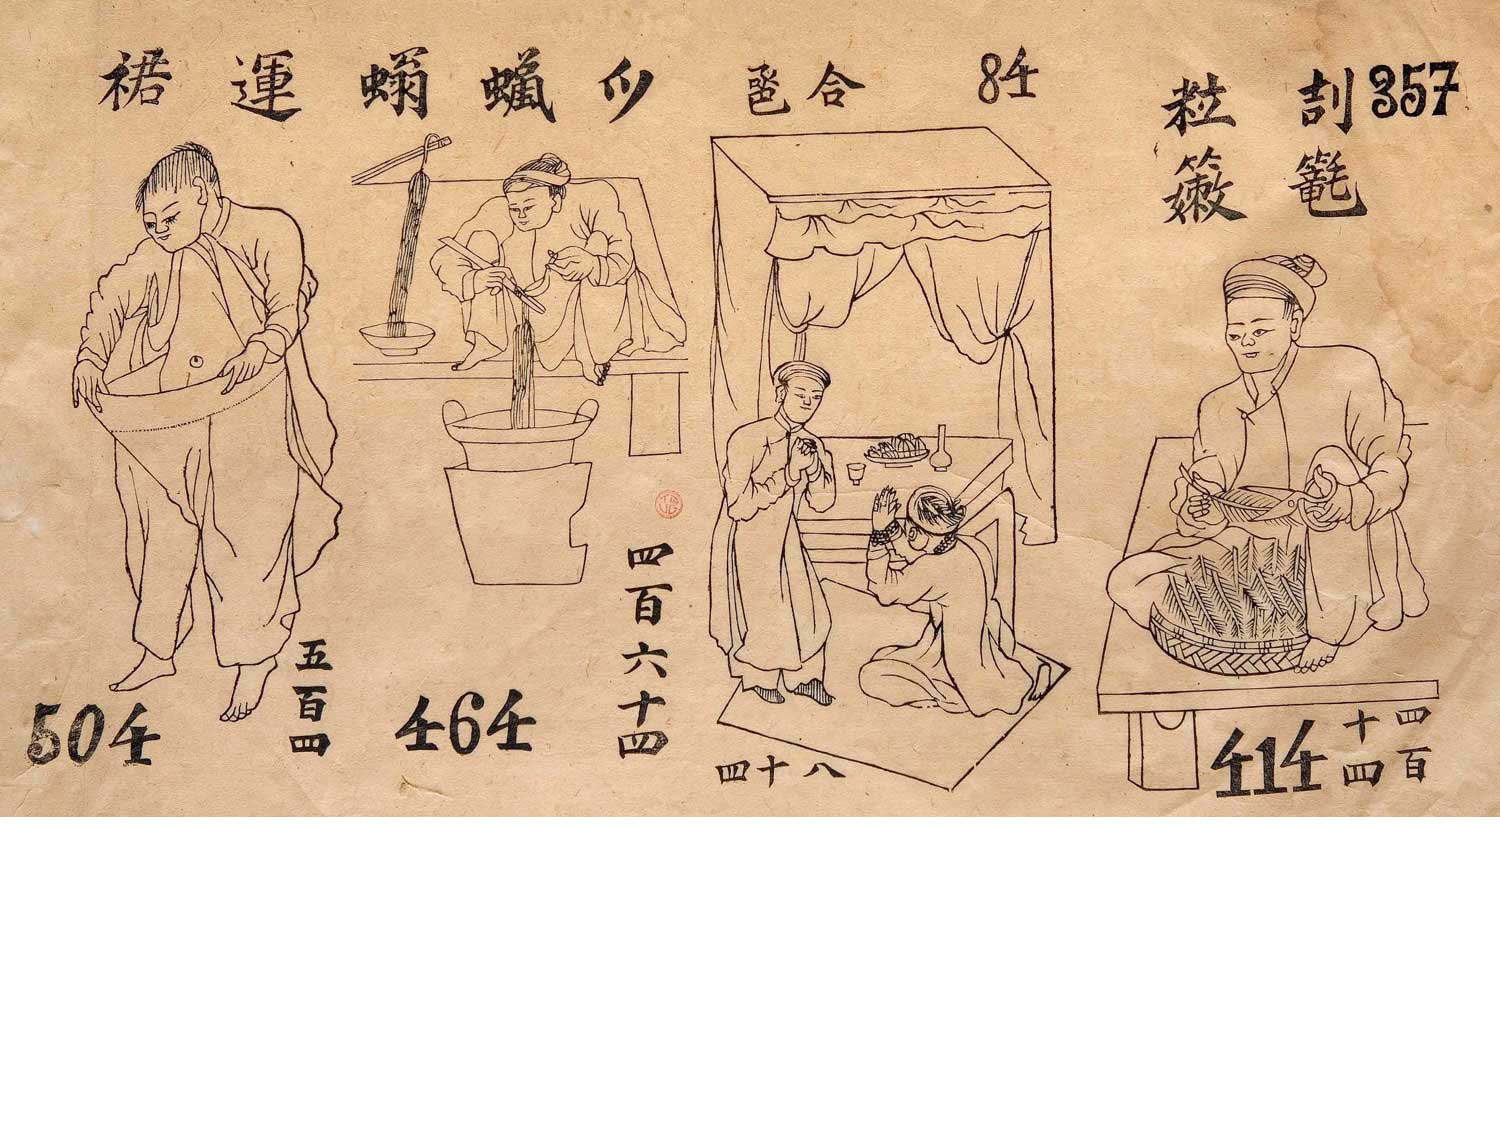 357
414
四百
十四
84
合巹
八十四
蠟螉
464
四百六十四
運裙
504
五百四